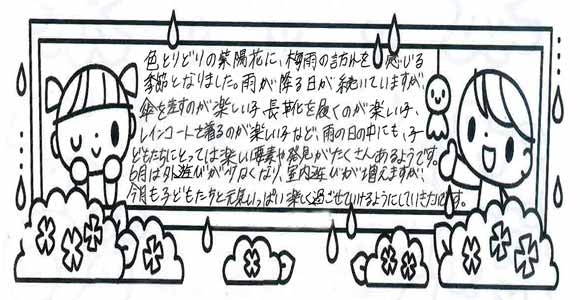 色とりどりの紫陽花に、梅雨の訪れを感じる
季節となりました。雨が降る日が続いていますが、
傘を差すのが楽しい子、長靴を履くのが楽しい子、
レインコートを着るのが楽しい子など、雨の日の中にも、子
どもたちにとっては楽しい要素や発見がたくさんあるようです。
6月は外遊びが少なくなり、室内遊びが増えますが、
今月も子どもたちと元気いっぱい楽しく過ごせていけるようにしていきたいです。